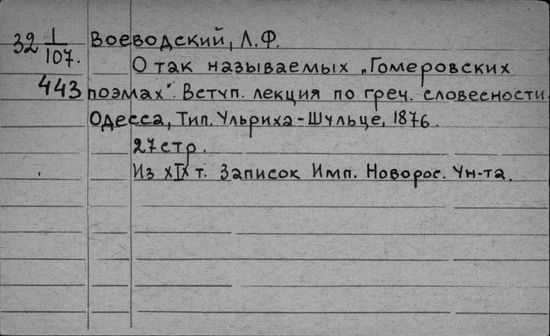 32 1/107. Воеводский, Л.Ф.
443
О так называемых „Гомеровских
поэмах". Вступ. лекция по греч. словесности
Одесса, Тип. Ульриха-Шульце, 1876.
27 стр.
Из XIX т. Записок Имп. Новорос. Ун-та.